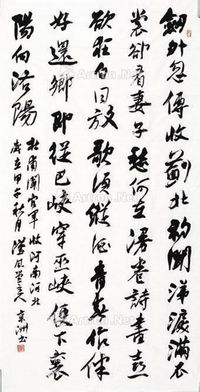 劍外忽傳收薊北初聞涕淚滿衣
裳卻看妻子愁何在漫卷詩書喜
欲狂白日放歌須縱酒青春作伴
好還鄉即從巴峽穿巫峽便下襄
陽向洛陽
杜甫聞官軍收河南河北
歲在甲午秋月 京洲書